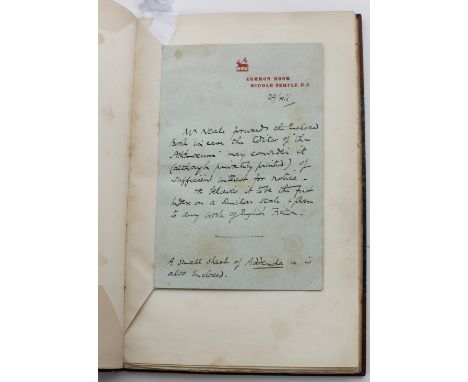 COMMON ROOM,
MIDDLE TEMPLE, E.C.
Mr Neale forwards the Enclosed
Book in case the Editor of the
"Athenaeum" may consider it
(although privately printed) of
sufficient interest for notice.
He believes it to be the first
Index on a similar scale & plan
to any work of English Fiction.
A small sheet of Addenda is
also enclosed.